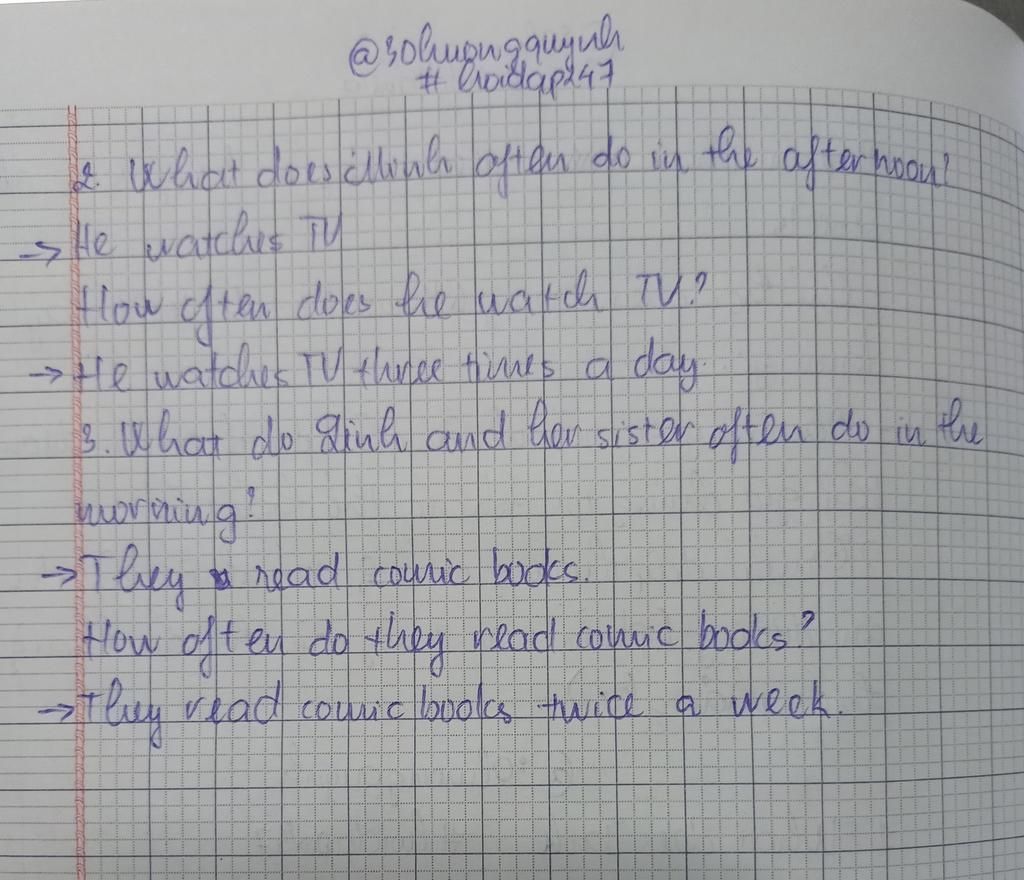 @30huongquynh
# hoidap247
2. What does Minh often do in the afternoon?
→ He watches TV
How often does he watch TV?
→ He watches TV three times a day.
3. What do Dinh and her sister often do in the
morning?
→ They read comic books.
How often do they read comic books?
→ They read comic books twice a week.